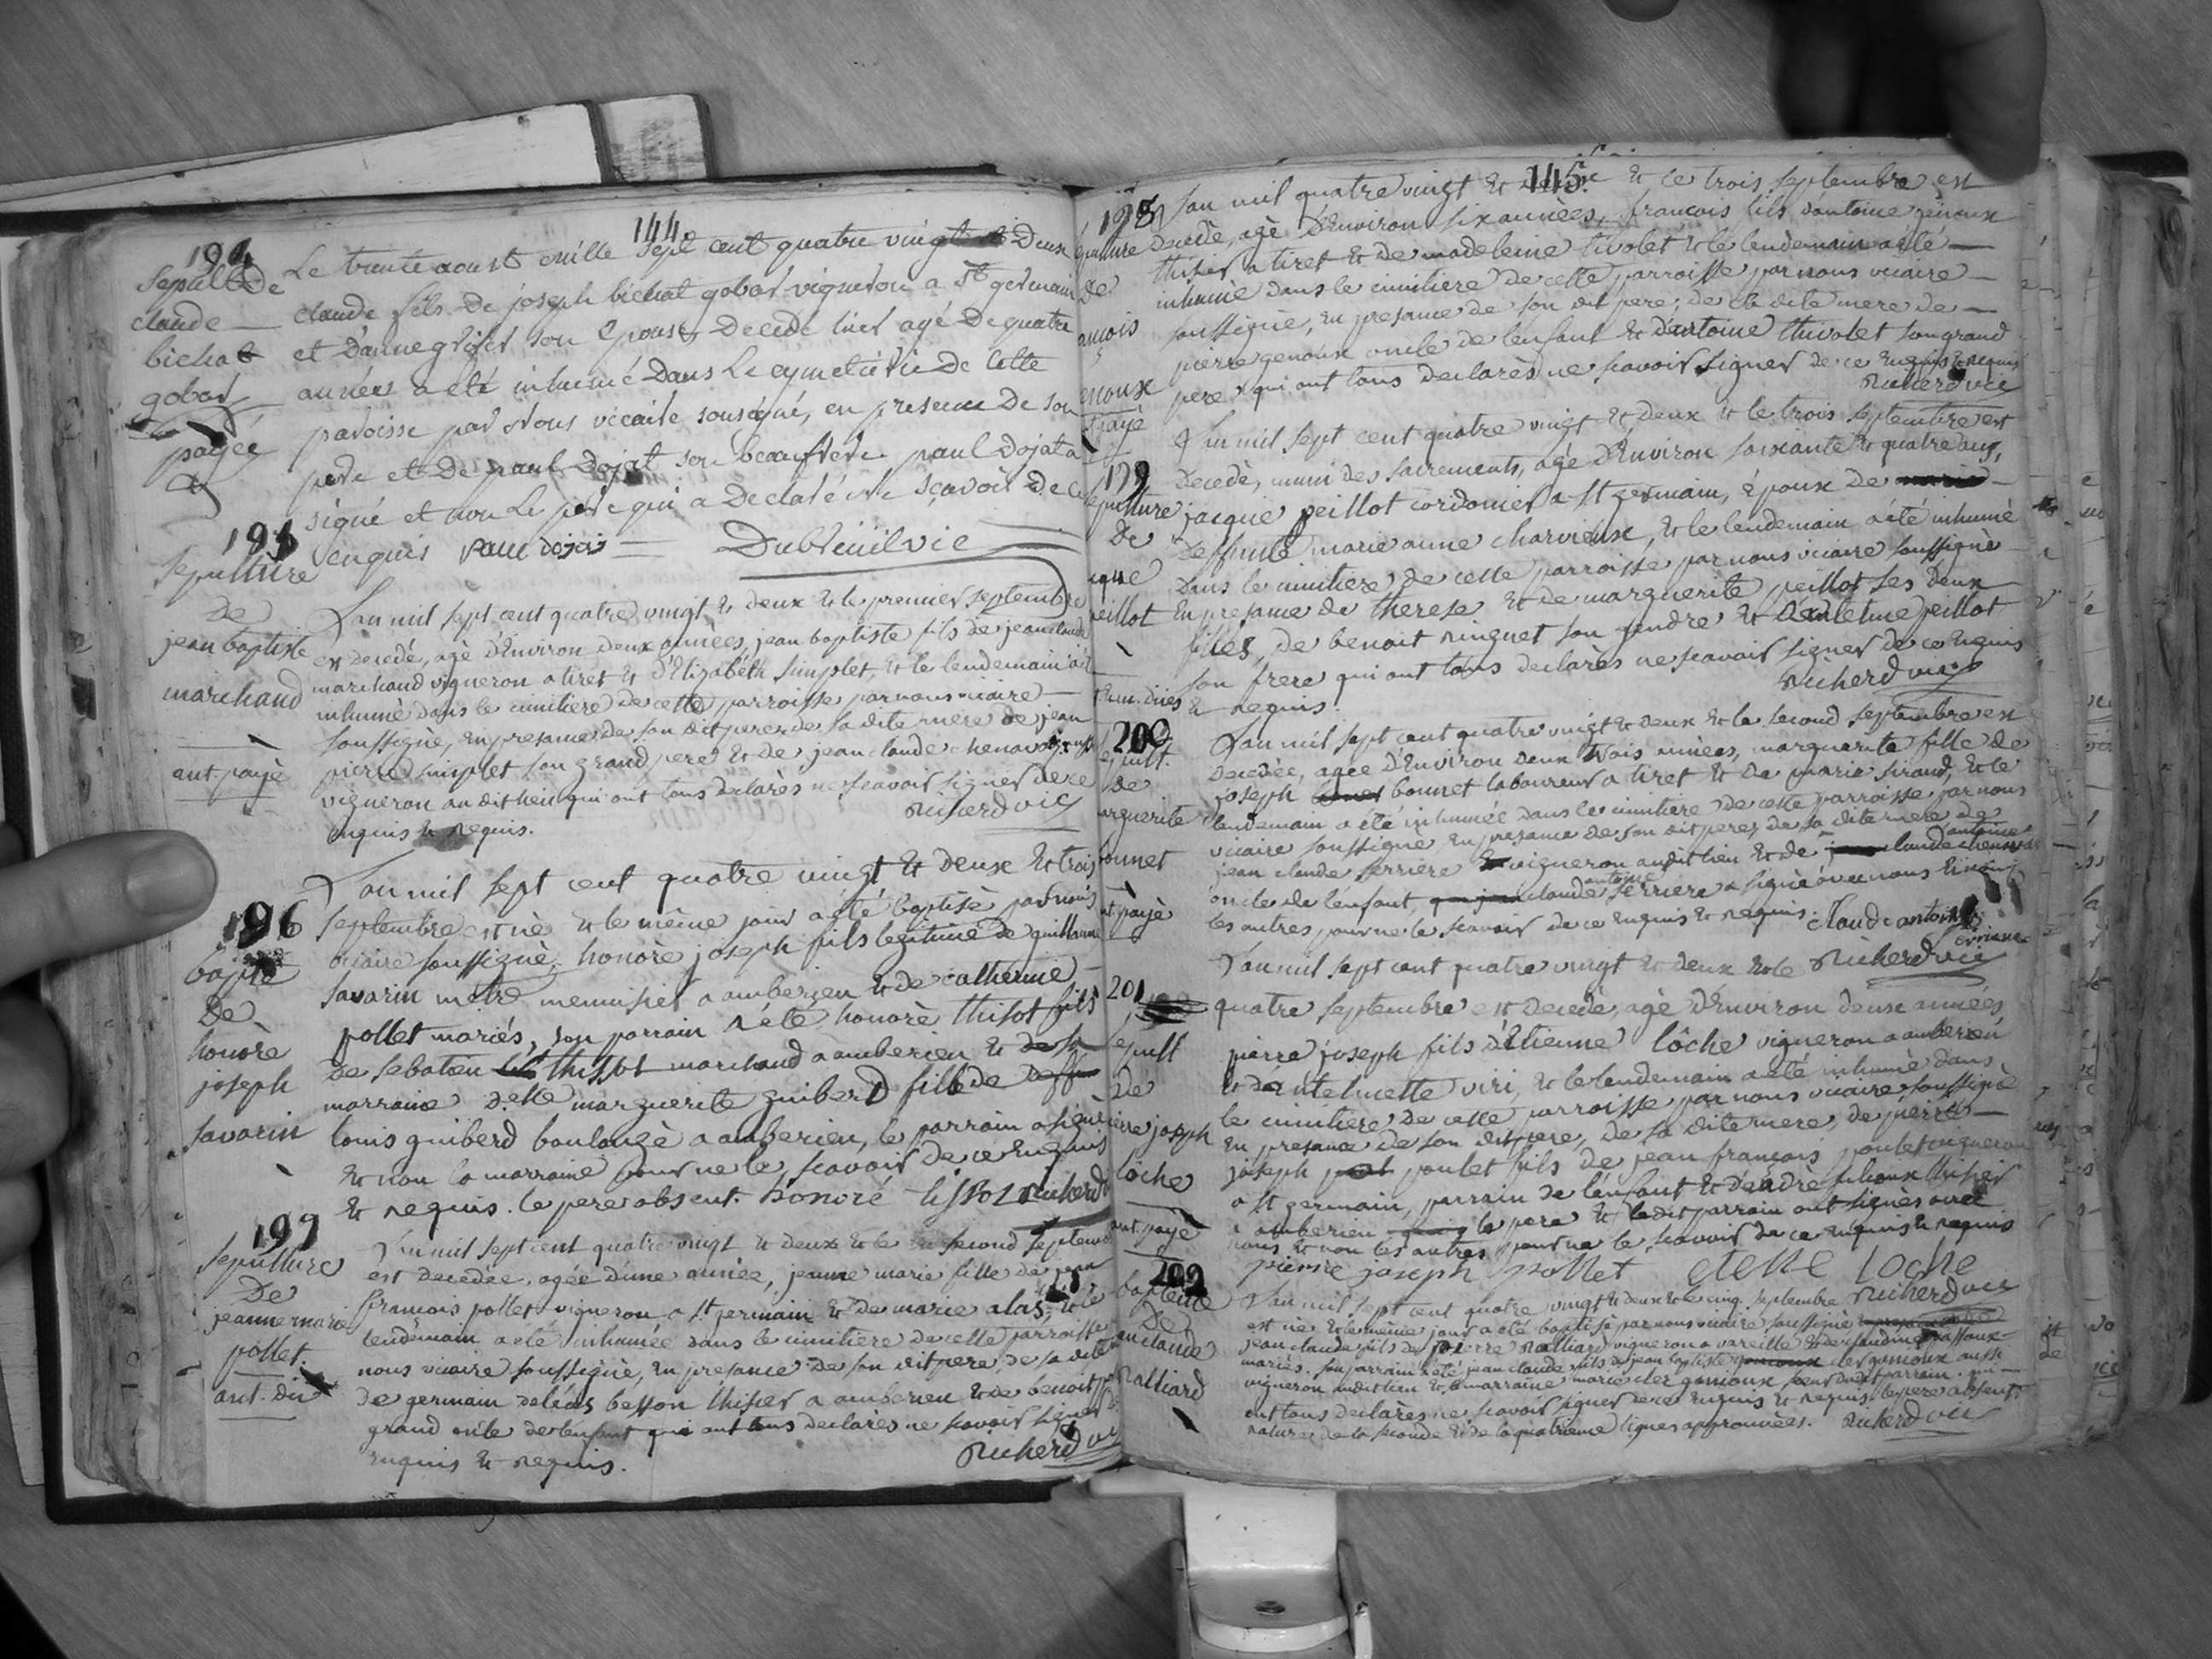 144.
194
Sepult De
claude
bichat
gobar
payée
Le trente aoust mille sept cent quatre vingt Deux
claude fils De joseph bichat gobar vigneron a St germain
et D'anne griser son Epouse Decedé hier agé De quatre
années a eté inhumé Dans Le cymetière De Cette
paroisse par Nous vicaire sousigné, en presence De son
pere et De paul Dojat son beaufrere paul Dojat a
signé et non Le père qui a Declaré ne sçavoir De ce
enquis paul dojat Dubreüil vic
195
Sepulture
De
jean baptiste
marchand
ant. payè
L'an mil sept cent quatre vingt & deux & le premier septembre
est decedé, agè d'Environ deux années, jean baptiste fils de jean claude
marchand vigneron a tiret & d'Elizabeth simplet, & le lendemain a été
inhumè dans le cimitiere de cette parroisse par nous vicaire
soussignè, en presance de son dit pere, de sa dite mère de jean
pierre simplet son grand pere & de jean claude chenavas aussi
vigneron au dit lieu qui ont tous declarès ne scavoir signer de ce
enquis & requis. Richerd vic
196
bapte
De
honorè
joseph
savarin
L'an mil sept cent quatre vingt & deux & trois
septembre est nè & le même jour a été baptisè par nous
vicaire soussignè, honorè joseph fils legitime de guillaume
savarin metre menuisier a amberieu & de catherine
pollet mariés, son parrain a été honorè thisot fils
De sebatien thissot marchand a amberieu &
marraine d.elle marguerite guiberd fille de
louis guiberd boulangè a amberieu, le parrain a signè
& non la marraine pour ne le scavoir de ce enquis
& requis. le pere absent. honoré tissot Richerd
197
sepulture
De
jeanne marie
pollet.
ant. dû
L'an mil sept cent quatre vingt & deux & le second septembre
est decedèe, agée d'une année, jeanne marie fille de jean
francois pollet vigneron a St germain & de marie alas, & le
lendemain a eté inhumèe dans le cimitiere de cette parroisse
nous vicaire soussignè, en presance de son dit pere, de sa dite
de germain deléas besson thisier a amberieu & de benoit
grand oncle de l'enfant qui ont tous declarès ne scavoir signer
enquis & requis. Richerd vic
145.
198
sepulture
De
ançois
enoux
payè
L'an mil quatre vingt & & le trois septembre est
Decedè, agè d'Environ six années, francois fils d'antoine genoux
thisier a tiret & de madeleine tivolet & le lendemain a été
inhumè dans le cimitiere de cette parroisse par nous vicaire
soussignè, en presance de son dit pere, de sa dite mere de
pierre genoux oncle de l'enfant & d'antoine thivolet son grand
pere qui ont tous declarès ne scavoir signer de ce enquis & requis
Richerd vic
199
sepulture
De
ique
peillot
L'an mil sept cent quatre vingt & deux & le trois septembre est
Decedè, muni des sacrements, agè d'Environ soixante & quatre ans,
jacque peillot cordonier a St germain, époux de
deffunte marie anne charvieux, & le lendemain a été inhumè
Dans le cimitiere de cette parroisse par nous vicaire soussignè
En presance de therese & de marguerite peillot ses deux
filles, de benoit ringuet son gendre & d'antelme peillot
son frere qui ont tous declarès ne scavoir signer de ce enquis
& requis. Richerd vic
200
sepult.
de
arguerite
bonnet
nt payè
L'an mil sept cent quatre vingt & deux & le second septembre est
Decedèe, agèe d'Environ deux trois années, marguerite fille de
joseph bonnet laboureur a tiret & de marie siraud, & le
lendemain a été inhumée dans le cimitiere de cette parroisse par nous
vicaire soussignè en presance de son dit pere, de sa dite mere de
jean claude serriere vigneron audit lieu & de claude antoine
oncle de l'enfant, claude antoine serriere a signè avec nous & non
les autres pour ne le scavoir de ce enquis & requis. Claude antoine
Richerd vic
201
sepult
de
ierre joseph
lôche
ant. paye
L'an mil sept cent quatre vingt & deux & le
quatre septembre est decedè, agè d'Environ deux années,
pierre joseph fils d'Etienne lôche vigneron a amberieu
& d'antelmette viri, & le lendemain a été inhumè dans
le cimitiere de cette parroisse par nous vicaire soussignè
En presance de son dit pere, de sa dite mere, de pierre
joseph poulet fils de jean françois poulet vigneron
a St germain, parrain de l'enfant & d'andrè thisier
a amberieu le pere & ledit parrain ont signès avec
nous & non les autres pour ne le scavoir de ce enquis & requis
pierre joseph pollet etene loche
Richerd vic
202
bapteme
De
an claude
Ralliard
L'an mil sept cent quatre vingt & deux & le cinq septembre
est nè & le même jour a été baptisè par nous vicaire soussignè
jean claude fils de pierre Ralliard vigneron a vareille & de claudine
mariès. son parrain a été jean claude fils de jean baptiste der genioux aussi
vigneron audit lieu & la marraine marie der genioux soeur dudit parrain. qui
ont tous declarès ne scavoir signer de ce enquis & requis. le pere absent.
ratures de la seconde & de la quatrieme lignes approuvées. Richerd vic